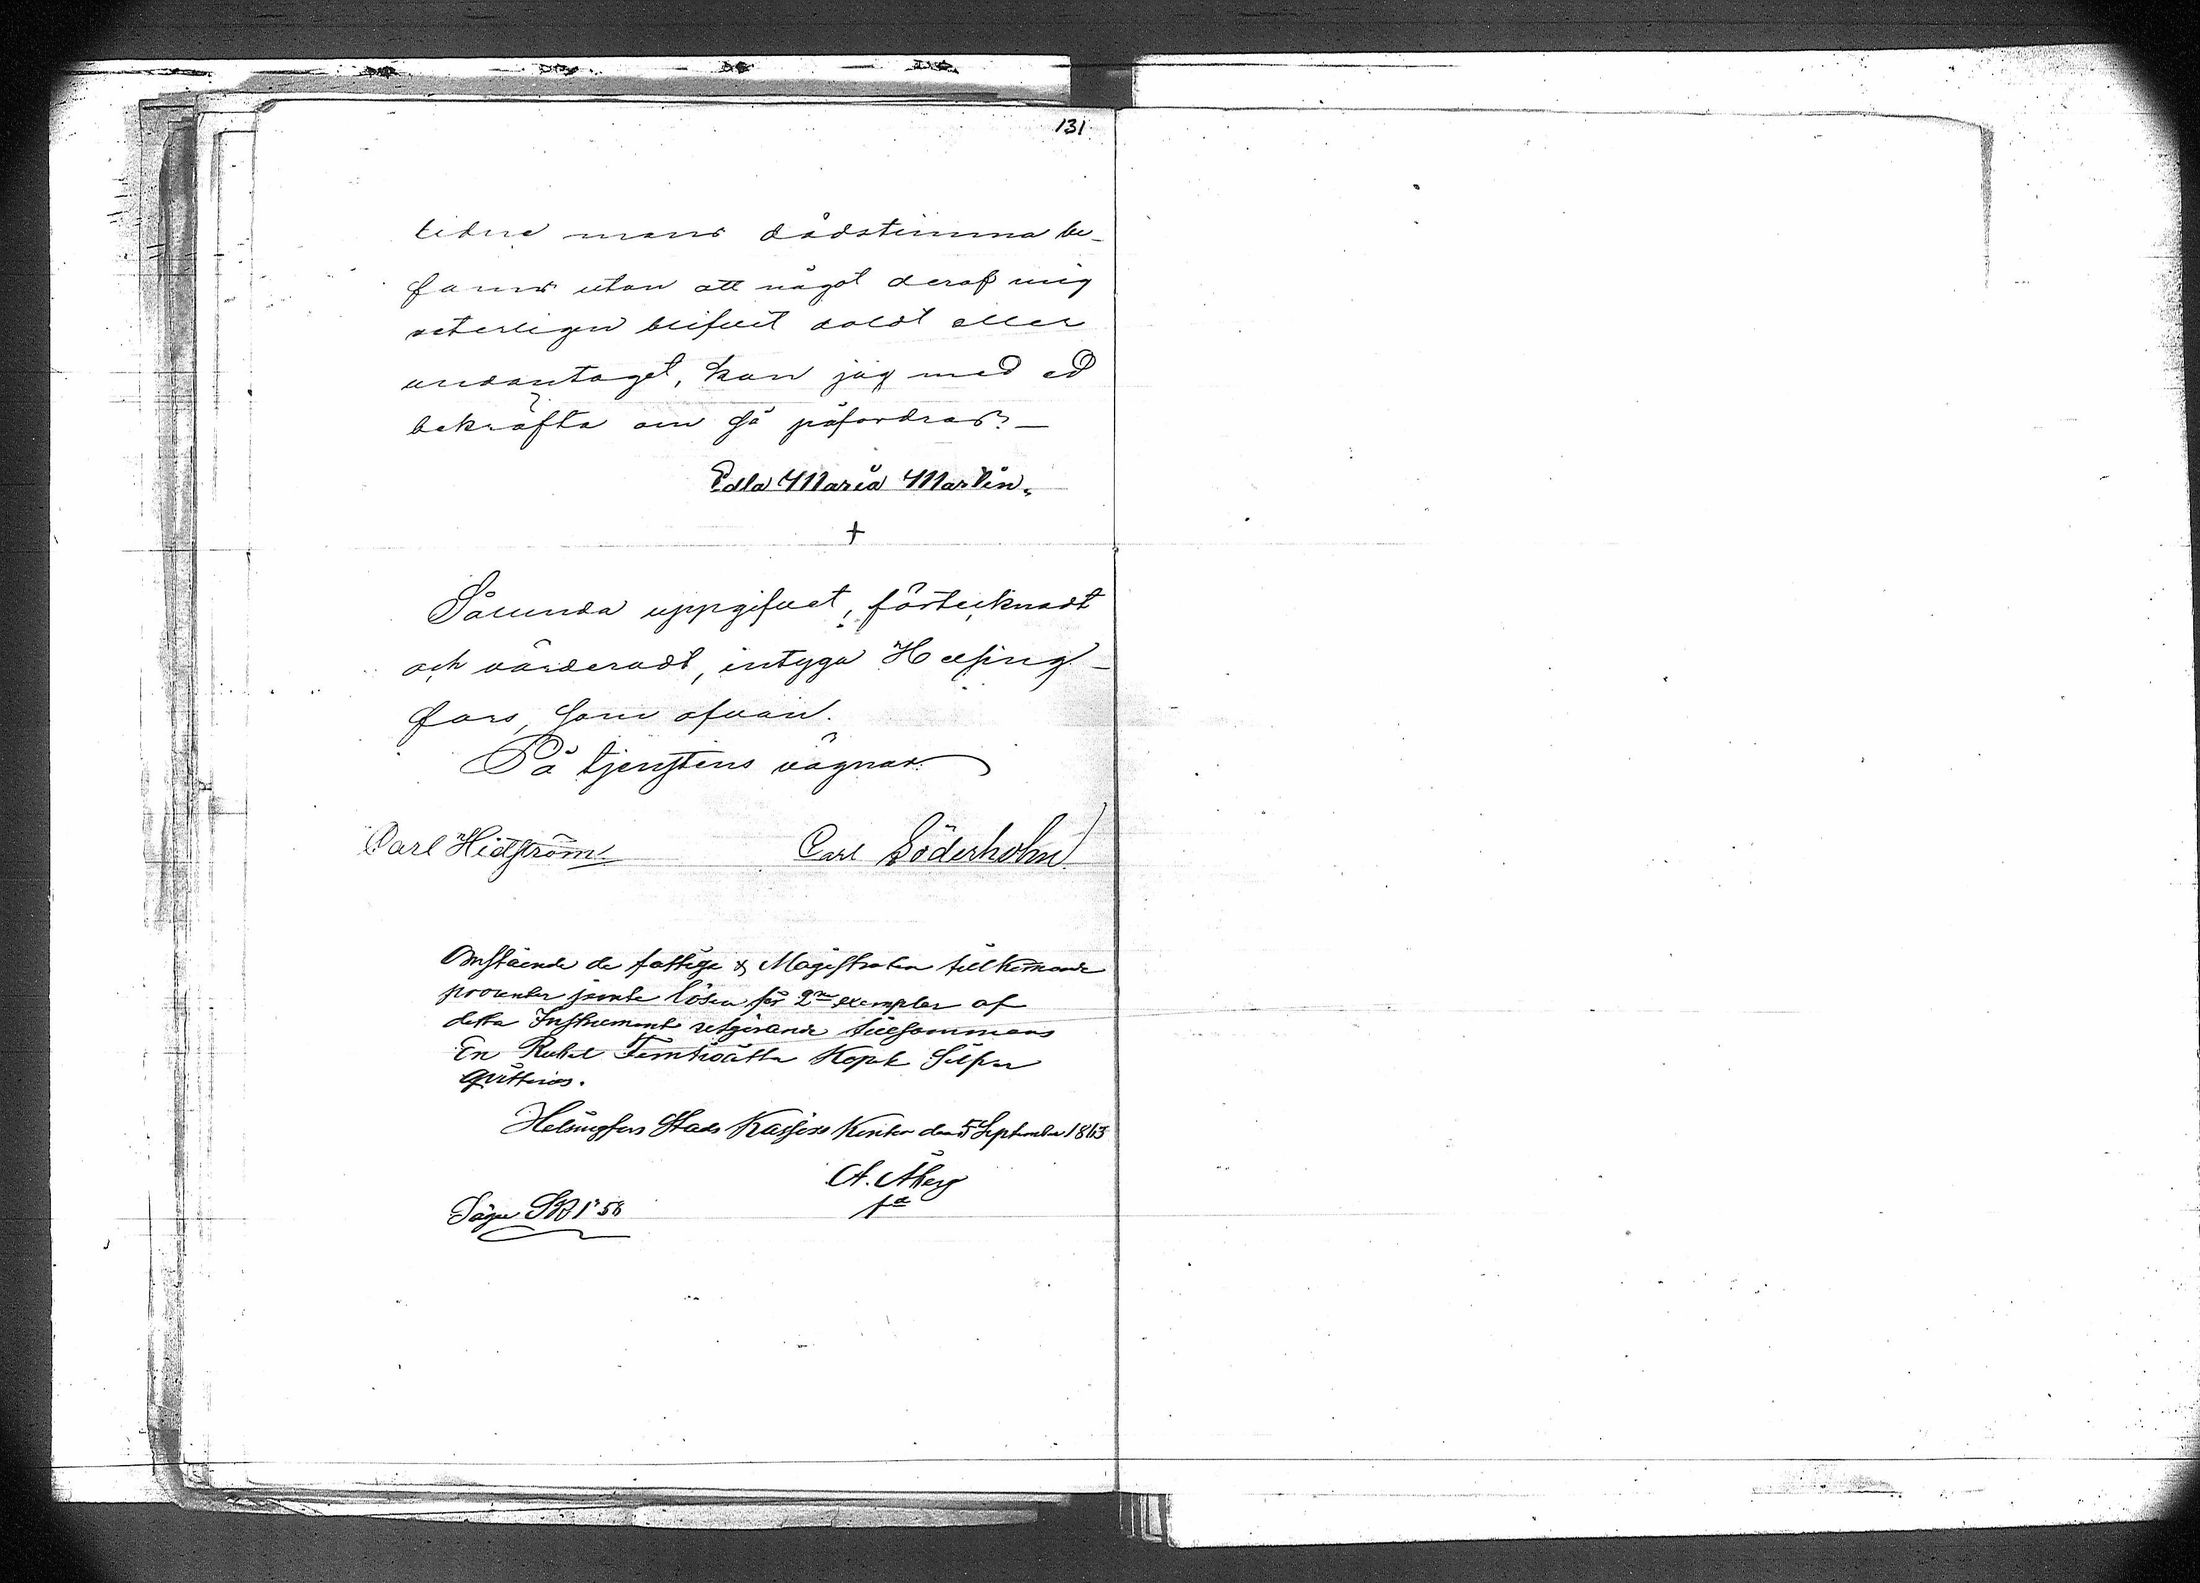 131
lidne mans dödstimma be-
fanns utan att något deraf mig
veterligen blifvit doldt eller
undantaget, kan jag med ed
bekräfta om så påfordras. —
Edla Maria Martin.
+
Sålunda uppgifvet, förtecknadt
och värderadt, intyga Helsing-
fors, som ofvan.
På tjenstens vägnar
Carl Hidström Carl Söderholm
Omstående de fattige & Magistraten tillkommande
procenter jemte lösen för 2ne exemplar af
detta Instrument utgörande tillsammans
En Rubel Femtioåtta Kopek Silfver
qvitteras.
Helsingfors Stads Kassörs Kontor den 5 September 1863
A. Åberg
Säger SR 1"58